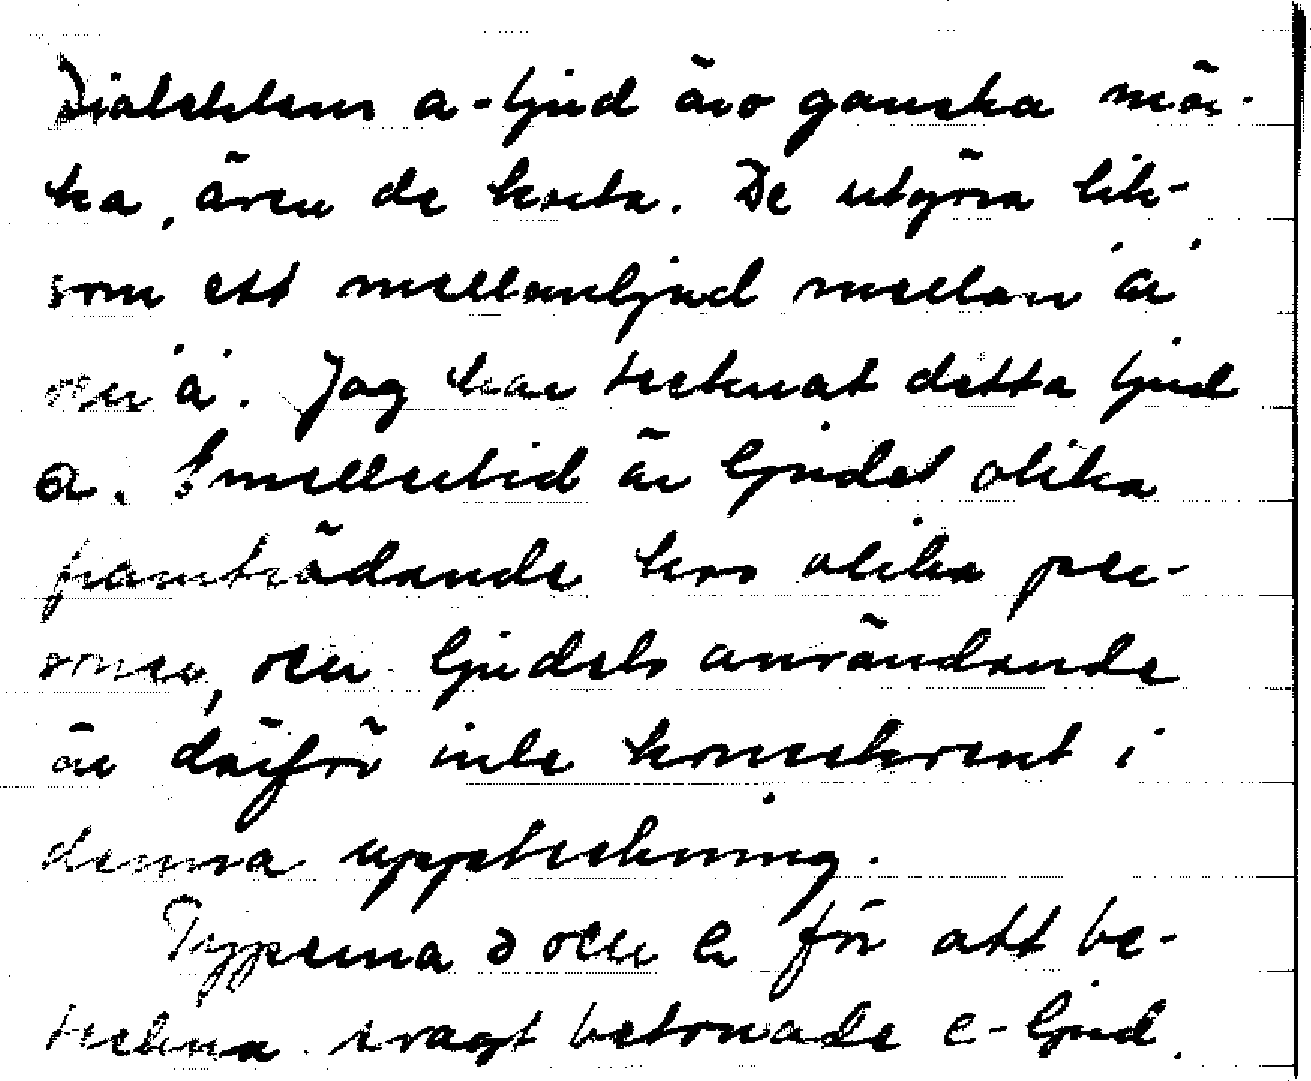 Dialektens a-ljud äro ganska mör-
ka, även de korta. De utgöra lik-
som ett mellanljud mellan 'a'
och 'å'. Jag har tecknat detta ljud
a. Emellertid är ljudet olika
framträdande hos olika per-
soner, och ljudets användande
är därför inte konsekvent i
denna uppteckning.
Typerna ə och e för att be-
teckna svagt betonade e-ljud.